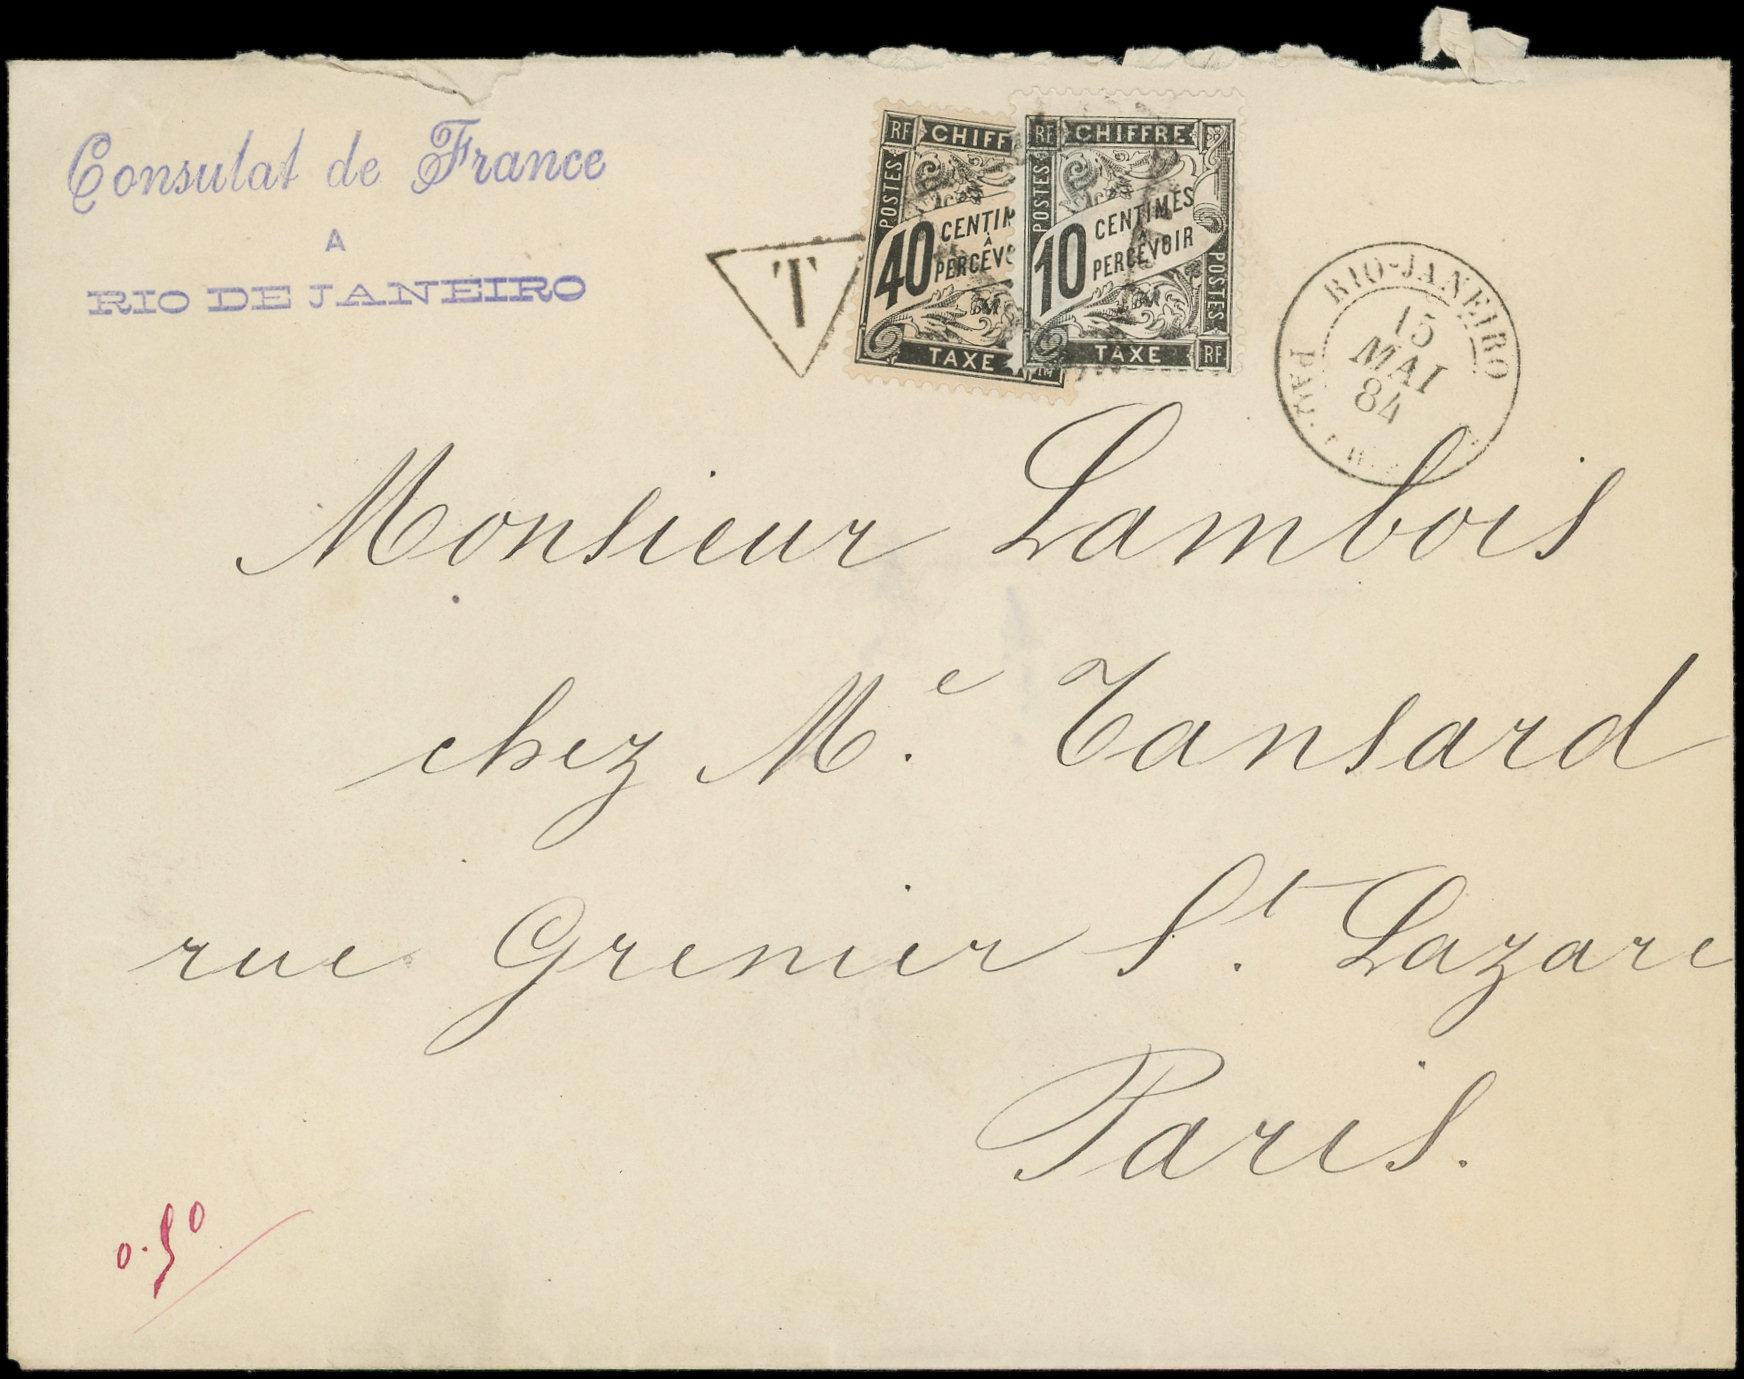 Consulat de France
A
RIO DE JANEIRO
T
RF CHIFF
POSTES
40 CENTIM
À
PERCEVO
TAXE
RF CHIFFRE
POSTES
10 CENTIMES
À
PERCEVOIR
POSTES
TAXE RF
RIO-JANEIRO
15
MAI
84
PAQ.
Monsieur Lambois
chez Me. Tansard
rue Grenier St. Lazare
Paris.
0.50